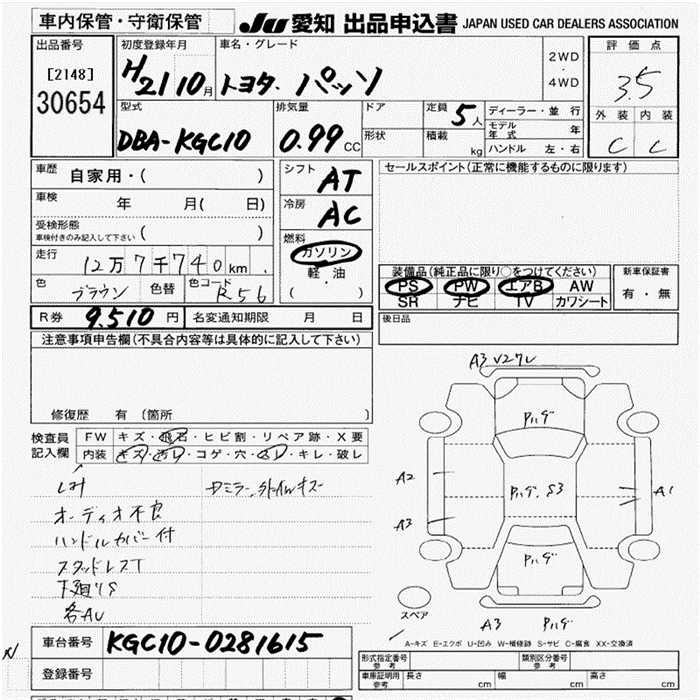 車内保管・守衛保管 JU 愛知 出品申込書 JAPAN USED CAR DEALERS ASSOCIATION
出品番号 初度登録年月 車名・グレード 2WD・4WD 評価点
[2148] H21 10月 トヨタ・パッソ 3.5
30654 型式 排気量 ドア 定員 5人 ディーラー・並行 外装 内装
DBA-KGC10 0.99CC 形状 積載 kg モデル年式 年 C C
ハンドル 左・右
車歴 自家用・( ) シフト AT セールスポイント(正常に機能するものに限ります)
車検 年 月( 日) 冷房 AC
受検形態 ( )
車検付きのみ記入して下さい 燃料 ガソリン
走行 12万7千740km 軽・油 装備品(純正品に限り○をつけてください) 新車保証書
色 ブラウン 色替 色コード R56 ( ) PS PW エアB AW 有・無
SR ナビ TV カワシート
R券 9.510円 名変通知期限 月 日 後日品
注意事項申告欄(不具合内容等は具体的に記入して下さい)
修復歴 有(箇所 )
検査員記入欄 FW キズ・飛石・ヒビ割・リペア跡・X要
内装 キズ・汚レ・コゲ・穴・スレ・キレ・破レ
オーディオ不良
ハンドルカバー付
スタッドレスT
下廻りS
各AU
A3
Pハゲ
A2
Pハゲ、S3
A1
A3
Pハゲ
スペア
A3 Pハゲ
A-キズ E-エクボ U-凹み W-補修跡 S-サビ C-腐食 XX-交換済
車台番号 KGC10-0281615 形式指定番号 参考 類別区分番号 参考
登録番号 車庫証明用 参考 長さ cm 幅 cm 高さ cm